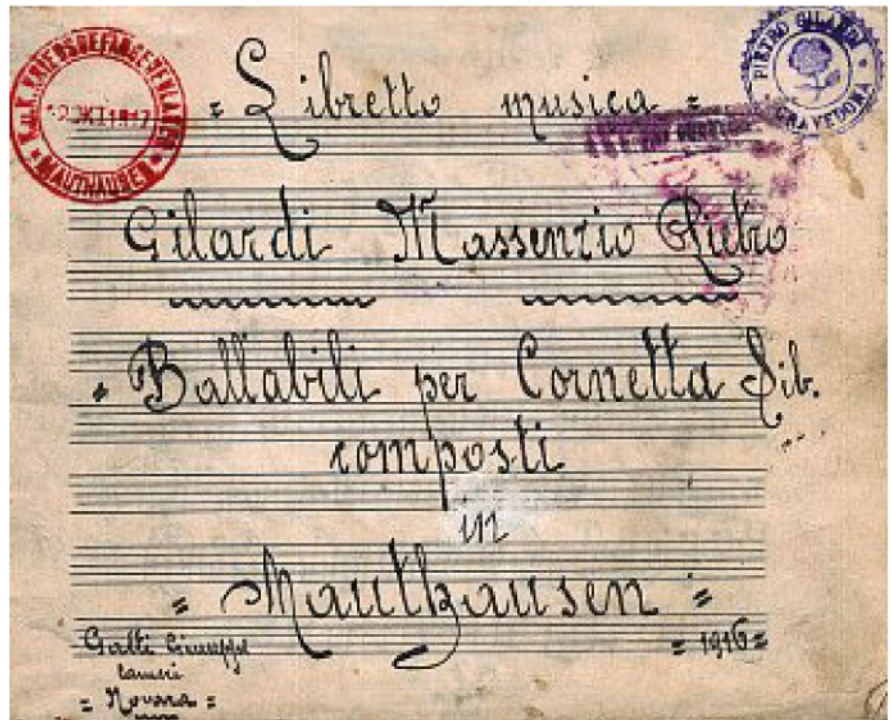 K.U.K. KRIEGSGEFANGENENLAGER
2 OKT 1917
* MAUTHAUSEN *
PIETRO GILARDI
* GRAVEDONA *
= Libretto musica =
Gilardi Massenzio Pietro
= Ballabili per Cornetta Sib.
composti
in
= Mauthausen =
= 1916 =
Galli Giuseppe
Cameri
= Novara =